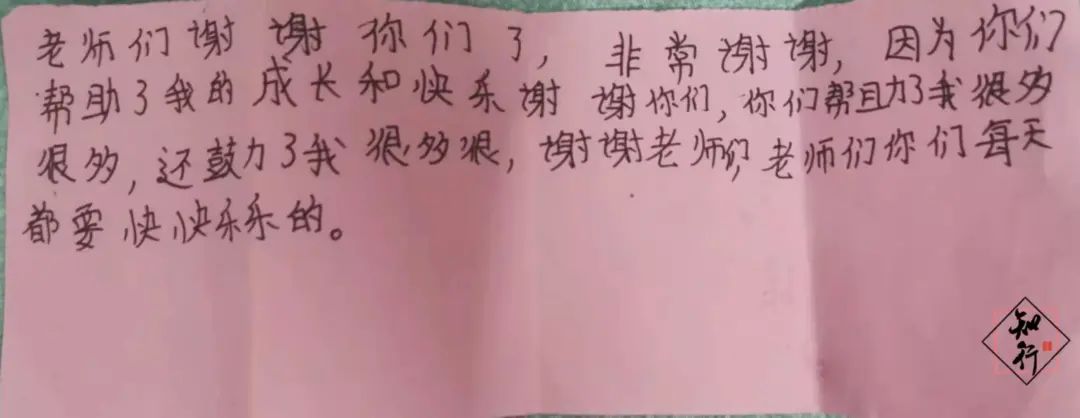 老师们谢谢你们了，非常谢谢，因为你们
帮助了我的成长和快乐谢谢你们，你们帮助了我很多
很多，还鼓力了我很多很，谢谢老师们，老师们你们每天
都要快快乐乐的。
知行